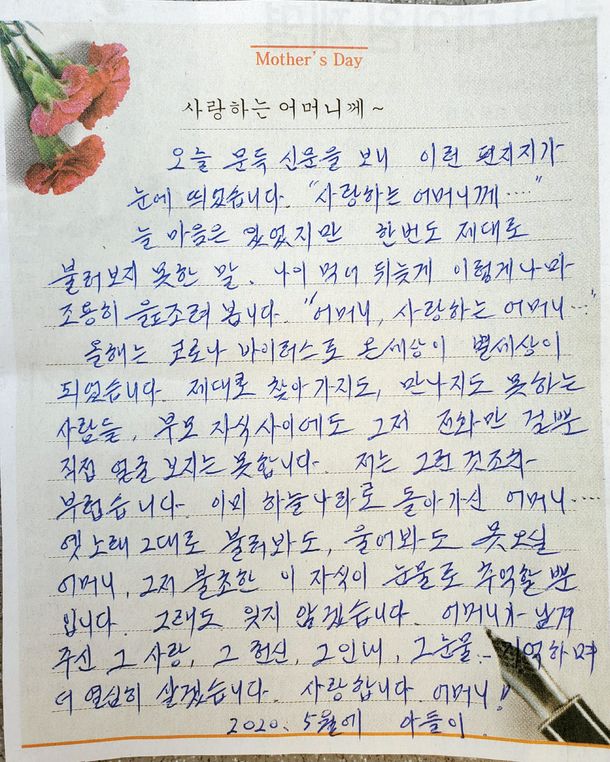 Mother's Day
사랑하는 어머니께~
오늘 문득 신문을 보니 이런 편지지가
눈에 띄었습니다. "사랑하는 어머니께····"
늘 마음은 있었지만 한번도 제대로
불러보지 못한 말, 나이 먹어 뒤늦게 이렇게나마
조용히 읊조려 봅니다. "어머니, 사랑하는 어머니···"
올해는 코로나 바이러스로 온세상이 별세상이
되었습니다. 제대로 찾아가지도, 만나지도 못하는
사람들, 부모 자식사이에도 그저 전화만 걸뿐
직접 얼굴 보지는 못합니다. 저는 그런 것조차
부럽습니다. 이미 하늘나라로 돌아가신 어머니····
옛노래 그대로 불러봐도, 울어봐도 못오실
어머니, 그저 불초한 이 자식이 눈물로 추억할 뿐
입니다. 그래도 잊지 않겠습니다. 어머니가 남겨
주신 그 사랑, 그 헌신, 그 인내, 그 눈물 기억하며
더 열심히 살겠습니다. 사랑합니다 어머니!
2020. 5월에 아들이.